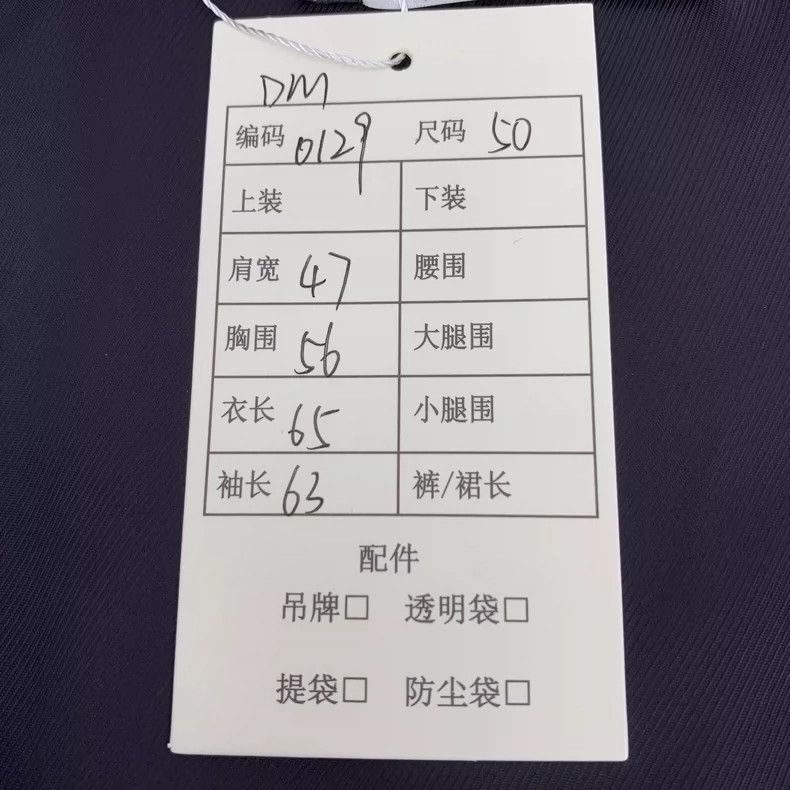 DM
编码 0129 尺码 50
上装 下装
肩宽 47 腰围
胸围 56 大腿围
衣长 65 小腿围
袖长 63 裤/裙长
配件
吊牌□ 透明袋□
提袋□ 防尘袋□